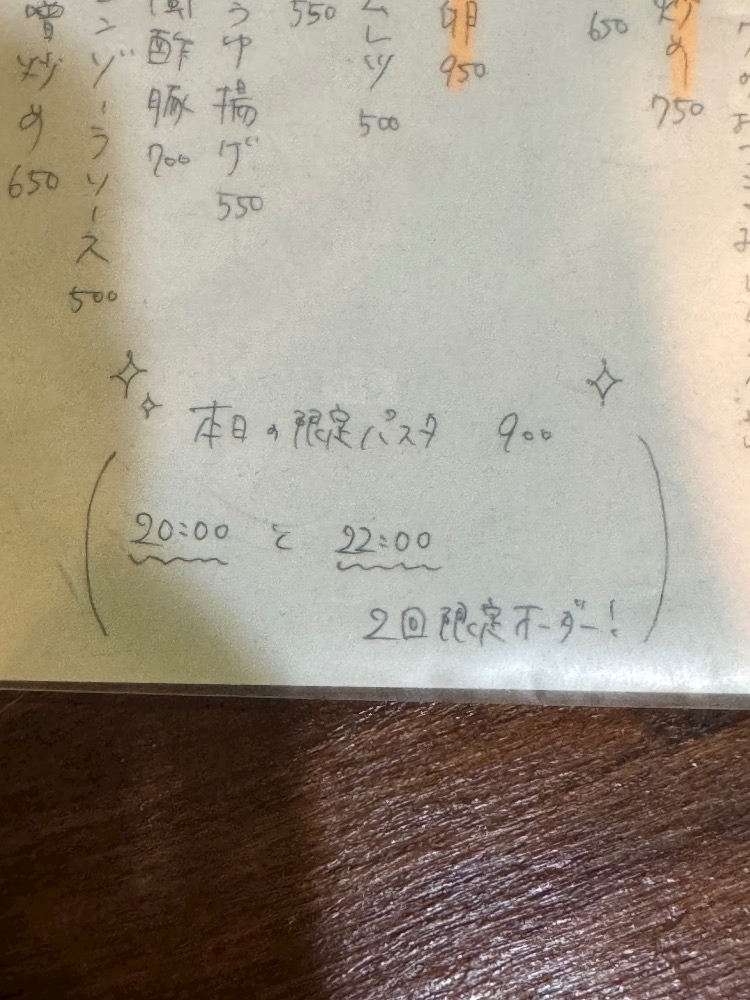 炒め 750
650
卵 950
ムレツ 500
550
うゆ揚げ 550
酢豚 700
ンゾーラソース 500
噌炒め 650
本日の限定パスタ 900
20:00 と 22:00
2回限定オーダー!